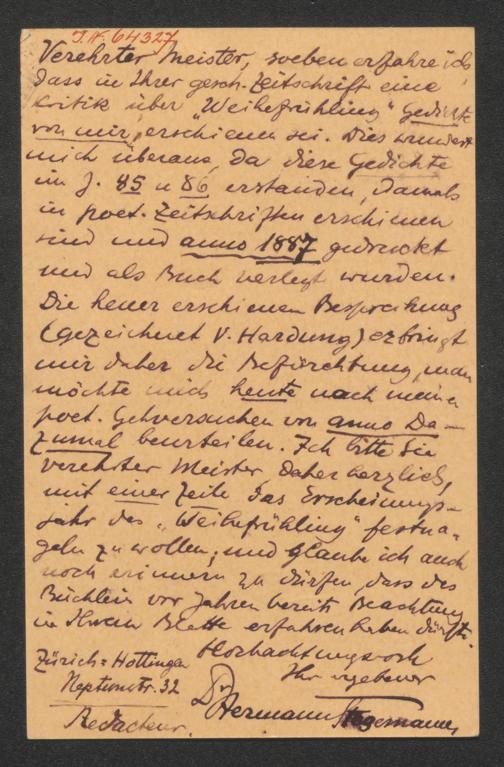 J.N. 64327
Verehrter Meister, soeben erfahre ich,
dass in Ihrer gesch. Zeitschrift eine
Kritik über „Weihefrühling“ Gedichte
von mir, erschienen sei. Dies wundert
mich überaus, da diese Gedichte
im J. 85 u 86 erstanden, damals
in poet. Zeitschriften erschienen
sind und anno 1887 gedruckt
und als Buch verlegt wurden.
Die heuer erschienen Besprechung
(gezeichnet V. Hardung) erbringt
mir daher die Befürchtung, man
möchte mich heute nach meinen
poet. Gehversuchen von anno Da-
zumal beurteilen. Ich bitte Sie
verehrter Meister daher herzlich,
mit einer Zeile das Erscheinungs-
jahr des „Weihefrühling“ festna-
geln zu wollen; und glaube ich auch
noch erinnern zu dürfen, dass das
Büchlein vor Jahren bereits Beachtung
in Ihrem Blatte erfahren haben dürfte.
Hochachtungsvoll
Ihr ergebener
Dr Hermann Stegemann,
Zürich=Hottingen
Neptunstr. 32
Redacteur.